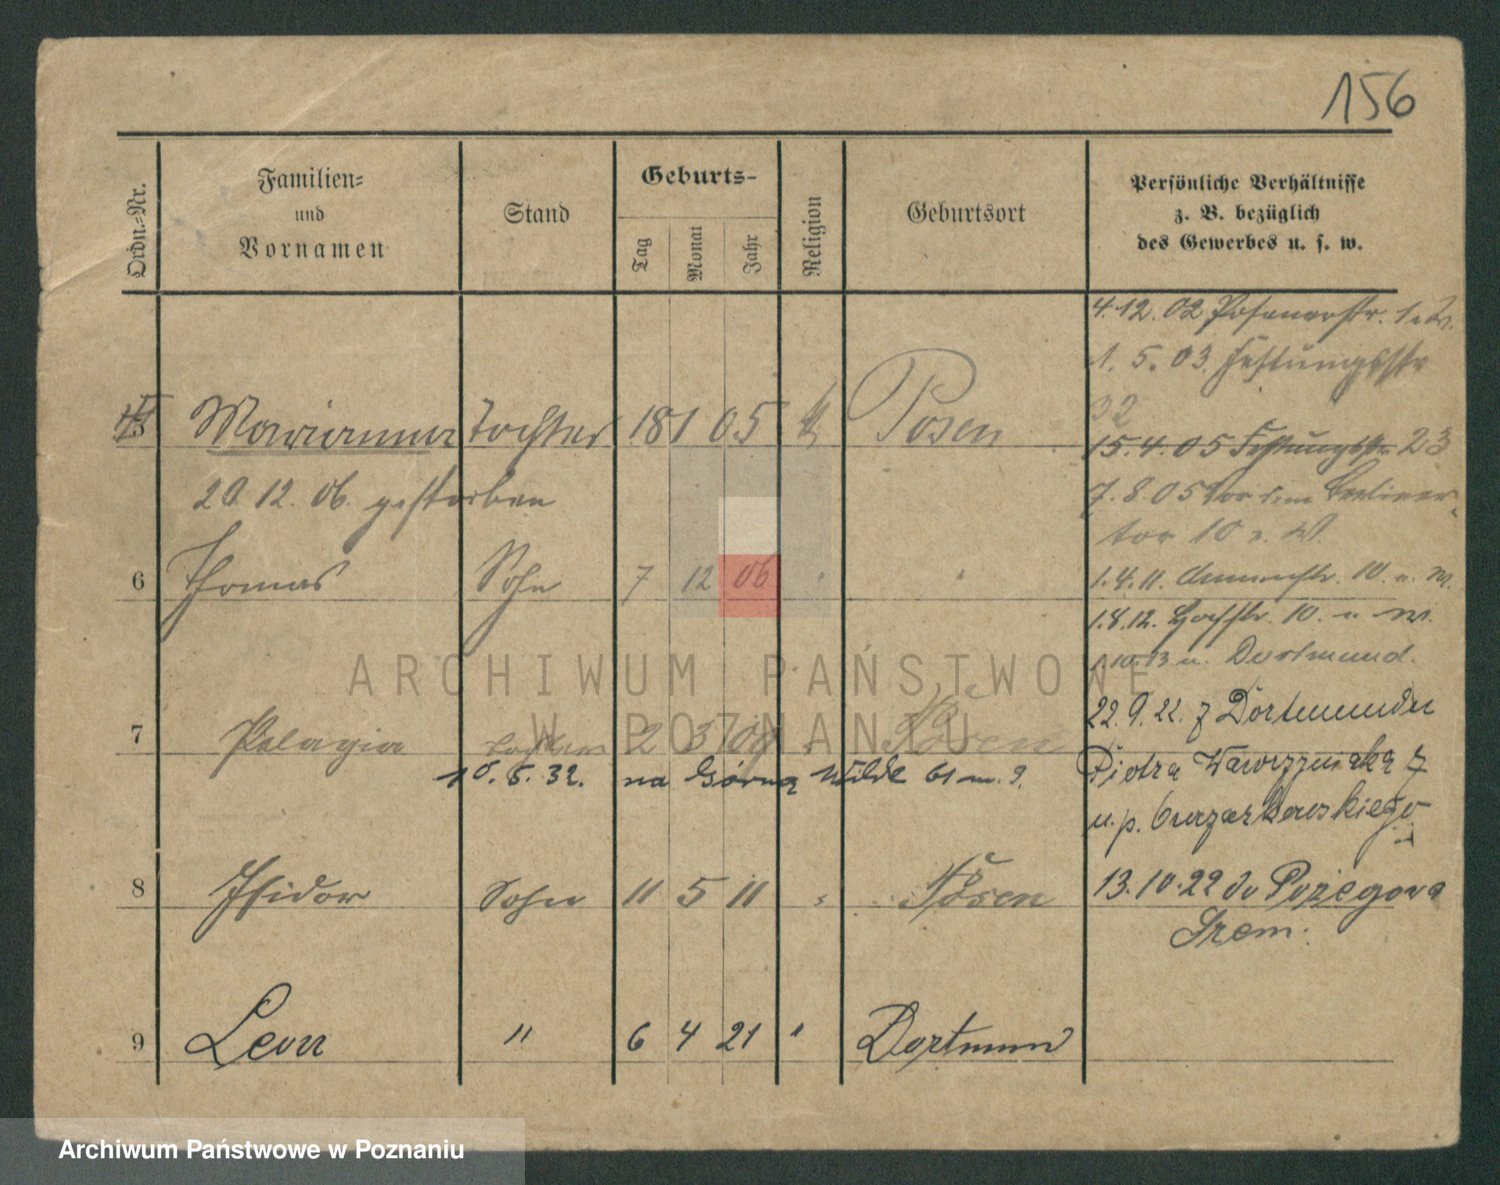 156
Ordn.-Nr.
Familien-
und
Vornamen
Stand
Geburts-
Tag
Monat
Jahr
Religion
Geburtsort
Persönliche Verhältnisse
z. B. bezüglich
des Gewerbes u. s. w.
4.12.02 Posenerstr.
1.5.03 Festungsstr
32
5 Marianna Tochter 18 1 05 Posen
15.4.05 Festungsstr 23
20.12.06. gestorben
7.8.05 Vor dem Berliner-
tor 10
6 Thomas Sohn 7 12 06 " "
1.4.11. 10. u. W.
1.8.12. Hochstr. 10. u. W.
1.10.13 n. Dortmund.
22.9.22. z Dortmundu
7 Pelagia Tochter 2 3 08 " Posen
Piotra Wawrzyniaka 7
10.5.32. na Górna Wilde 61 m. 9.
u. p.
8 Isidor Sohn 11 5 11 " Posen
13.10.22 do
Srem.
9 Leon " 6 4 21 " Dortmund
ARCHIWUM PAŃSTWOWE
W POZNANIU
Archiwum Państwowe w Poznaniu